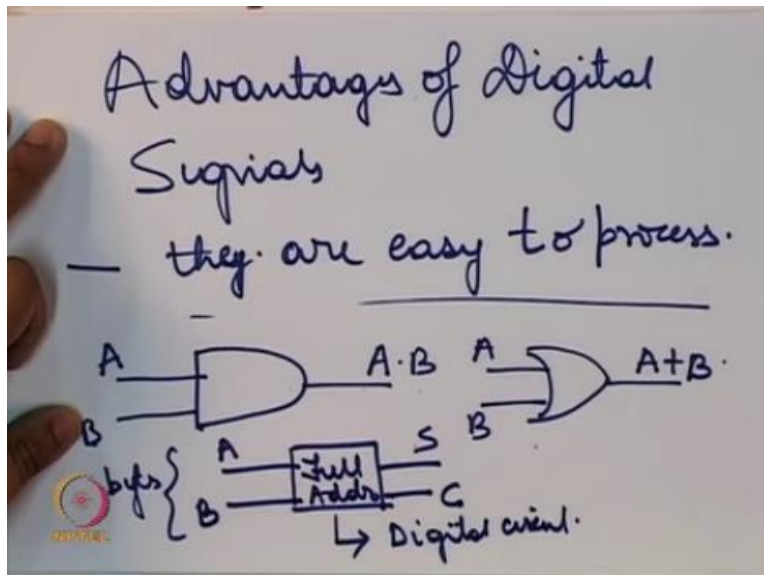 Advantags of Digital
Signals
— they are easy to process.
A
B
A·B
A
B
A+B.
byts { A
B
Full
Addr
S
C
↳ Digital circuit.
NPTEL